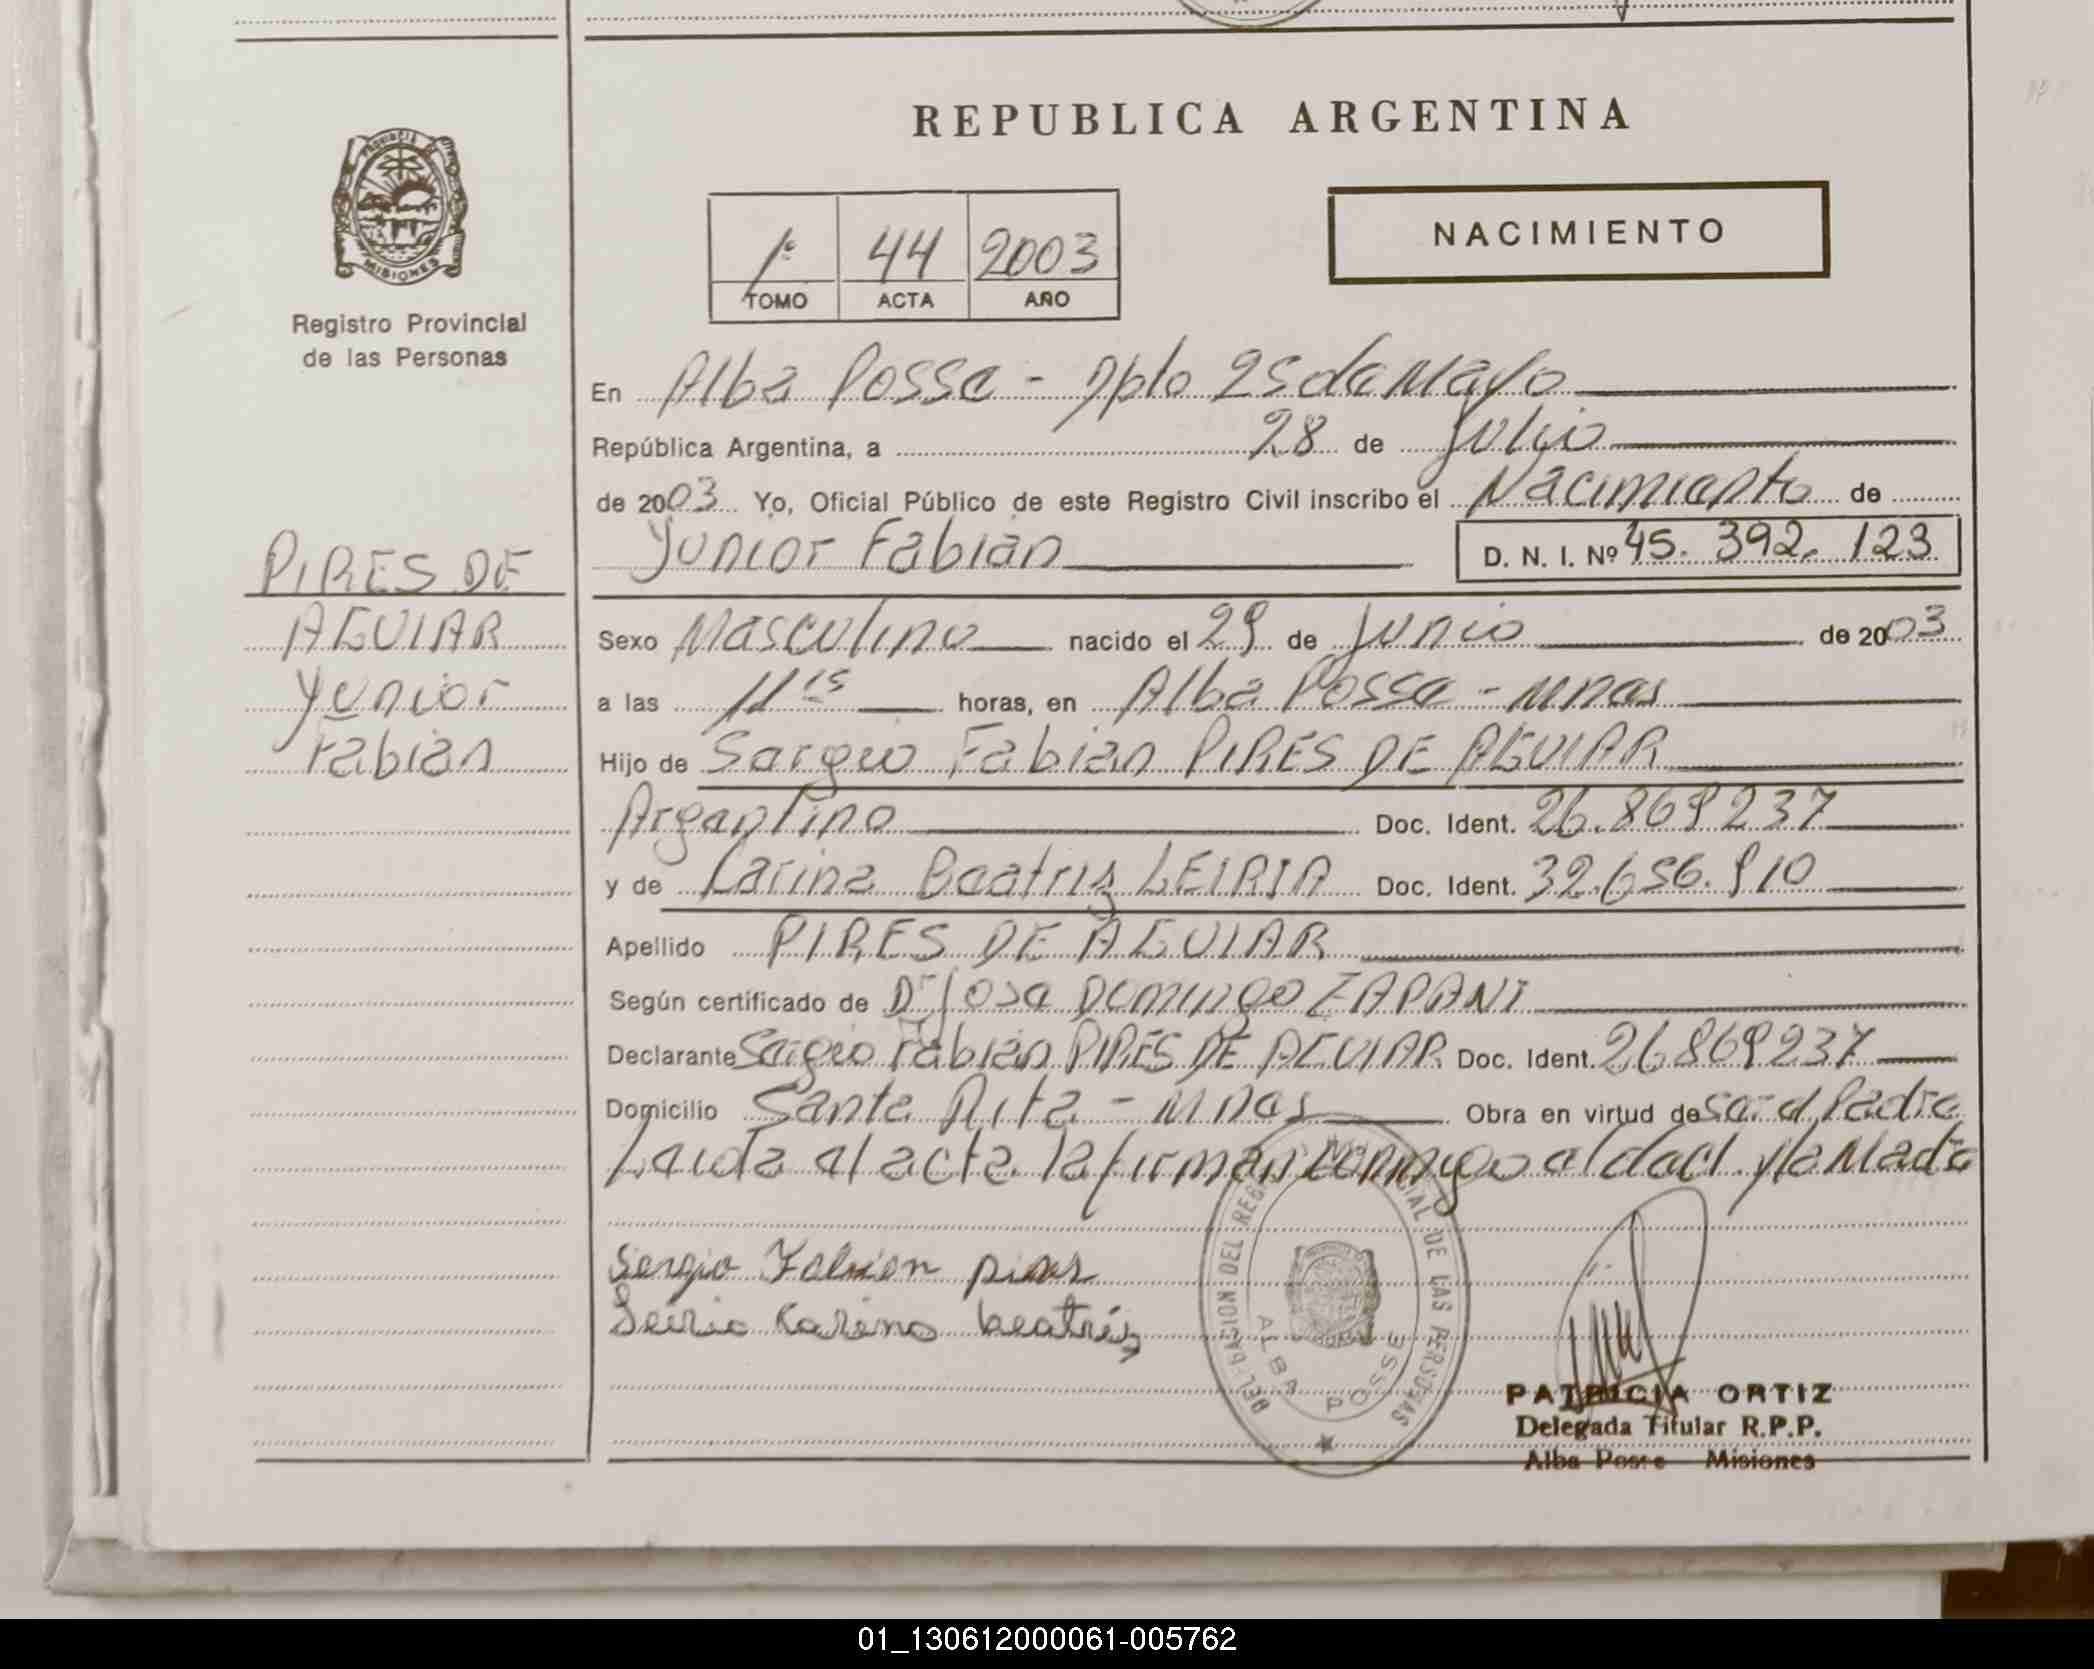 REPUBLICA ARGENTINA
PROVINCIA DE
MISIONES
Registro Provincial
de las Personas
NACIMIENTO
1º 44 2003
TOMO ACTA AÑO
En Alba Posse - Dpto 25 de Mayo
República Argentina, a 28 de Julio
de 2003 Yo, Oficial Público de este Registro Civil inscribo el Nacimiento de
Yunior Fabián
D. N. I. Nº 45. 392. 123
PIRES DE
AGUIAR
Yunior
Fabián
Sexo Masculino nacido el 29 de Junio de 2003
a las 11 15 horas, en Alba Posse - Mnes
Hijo de Sergio Fabian PIRES DE AGUIAR
Argentino Doc. Ident. 26.869237
y de Carina Beatriz LEIRIA Doc. Ident. 32.656.910
Apellido PIRES DE AGUIAR
Según certificado de Dr Jose Domingo ZAPANI
Declarante Sergio Fabián PIRES DE AGUIAR Doc. Ident. 26869237
Domicilio Santa Rita - Mnes Obra en virtud de ser el Padre
Leida el acta la firman conmigo el decl. y la Madre
Sergio Fabian pires
Leiria Carina beatriz
DELEGACION DEL REGISTRO PROVINCIAL DE LAS PERSONAS
ALBA POSSE
PATRICIA ORTIZ
Delegada Titular R.P.P.
Alba Posse Misiones
01_130612000061-005762